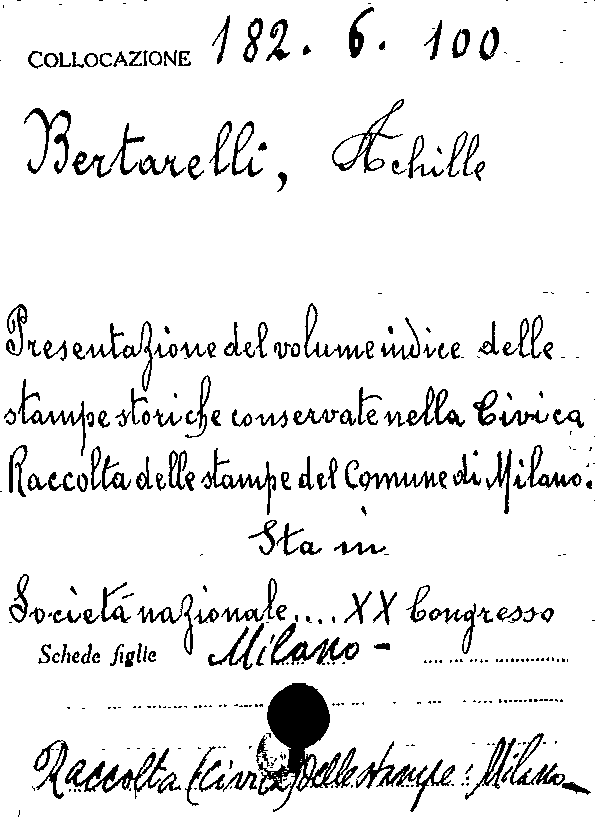 COLLOCAZIONE 182. 6. 100
Bertarelli, Achille
Presentazione del volume indice delle
stampe storiche conservate nella Civica
Raccolta delle stampe del Comune di Milano.
Sta in
Società nazionale.... XX Congresso
Schede figlie Milano -
Raccolta (Civica) delle stampe : Milano_